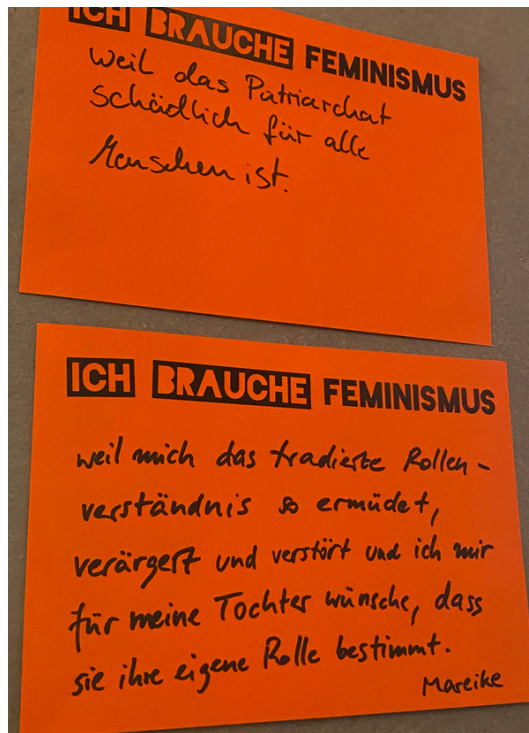 ICH BRAUCHE FEMINISMUS
weil das Patriarchat
schädlich für alle
Menschen ist.
ICH BRAUCHE FEMINISMUS
weil mich das tradierte Rollen-
verständnis so ermüdet,
verärgert und verstört und ich mir
für meine Tochter wünsche, dass
sie ihre eigene Rolle bestimmt.
Mareike